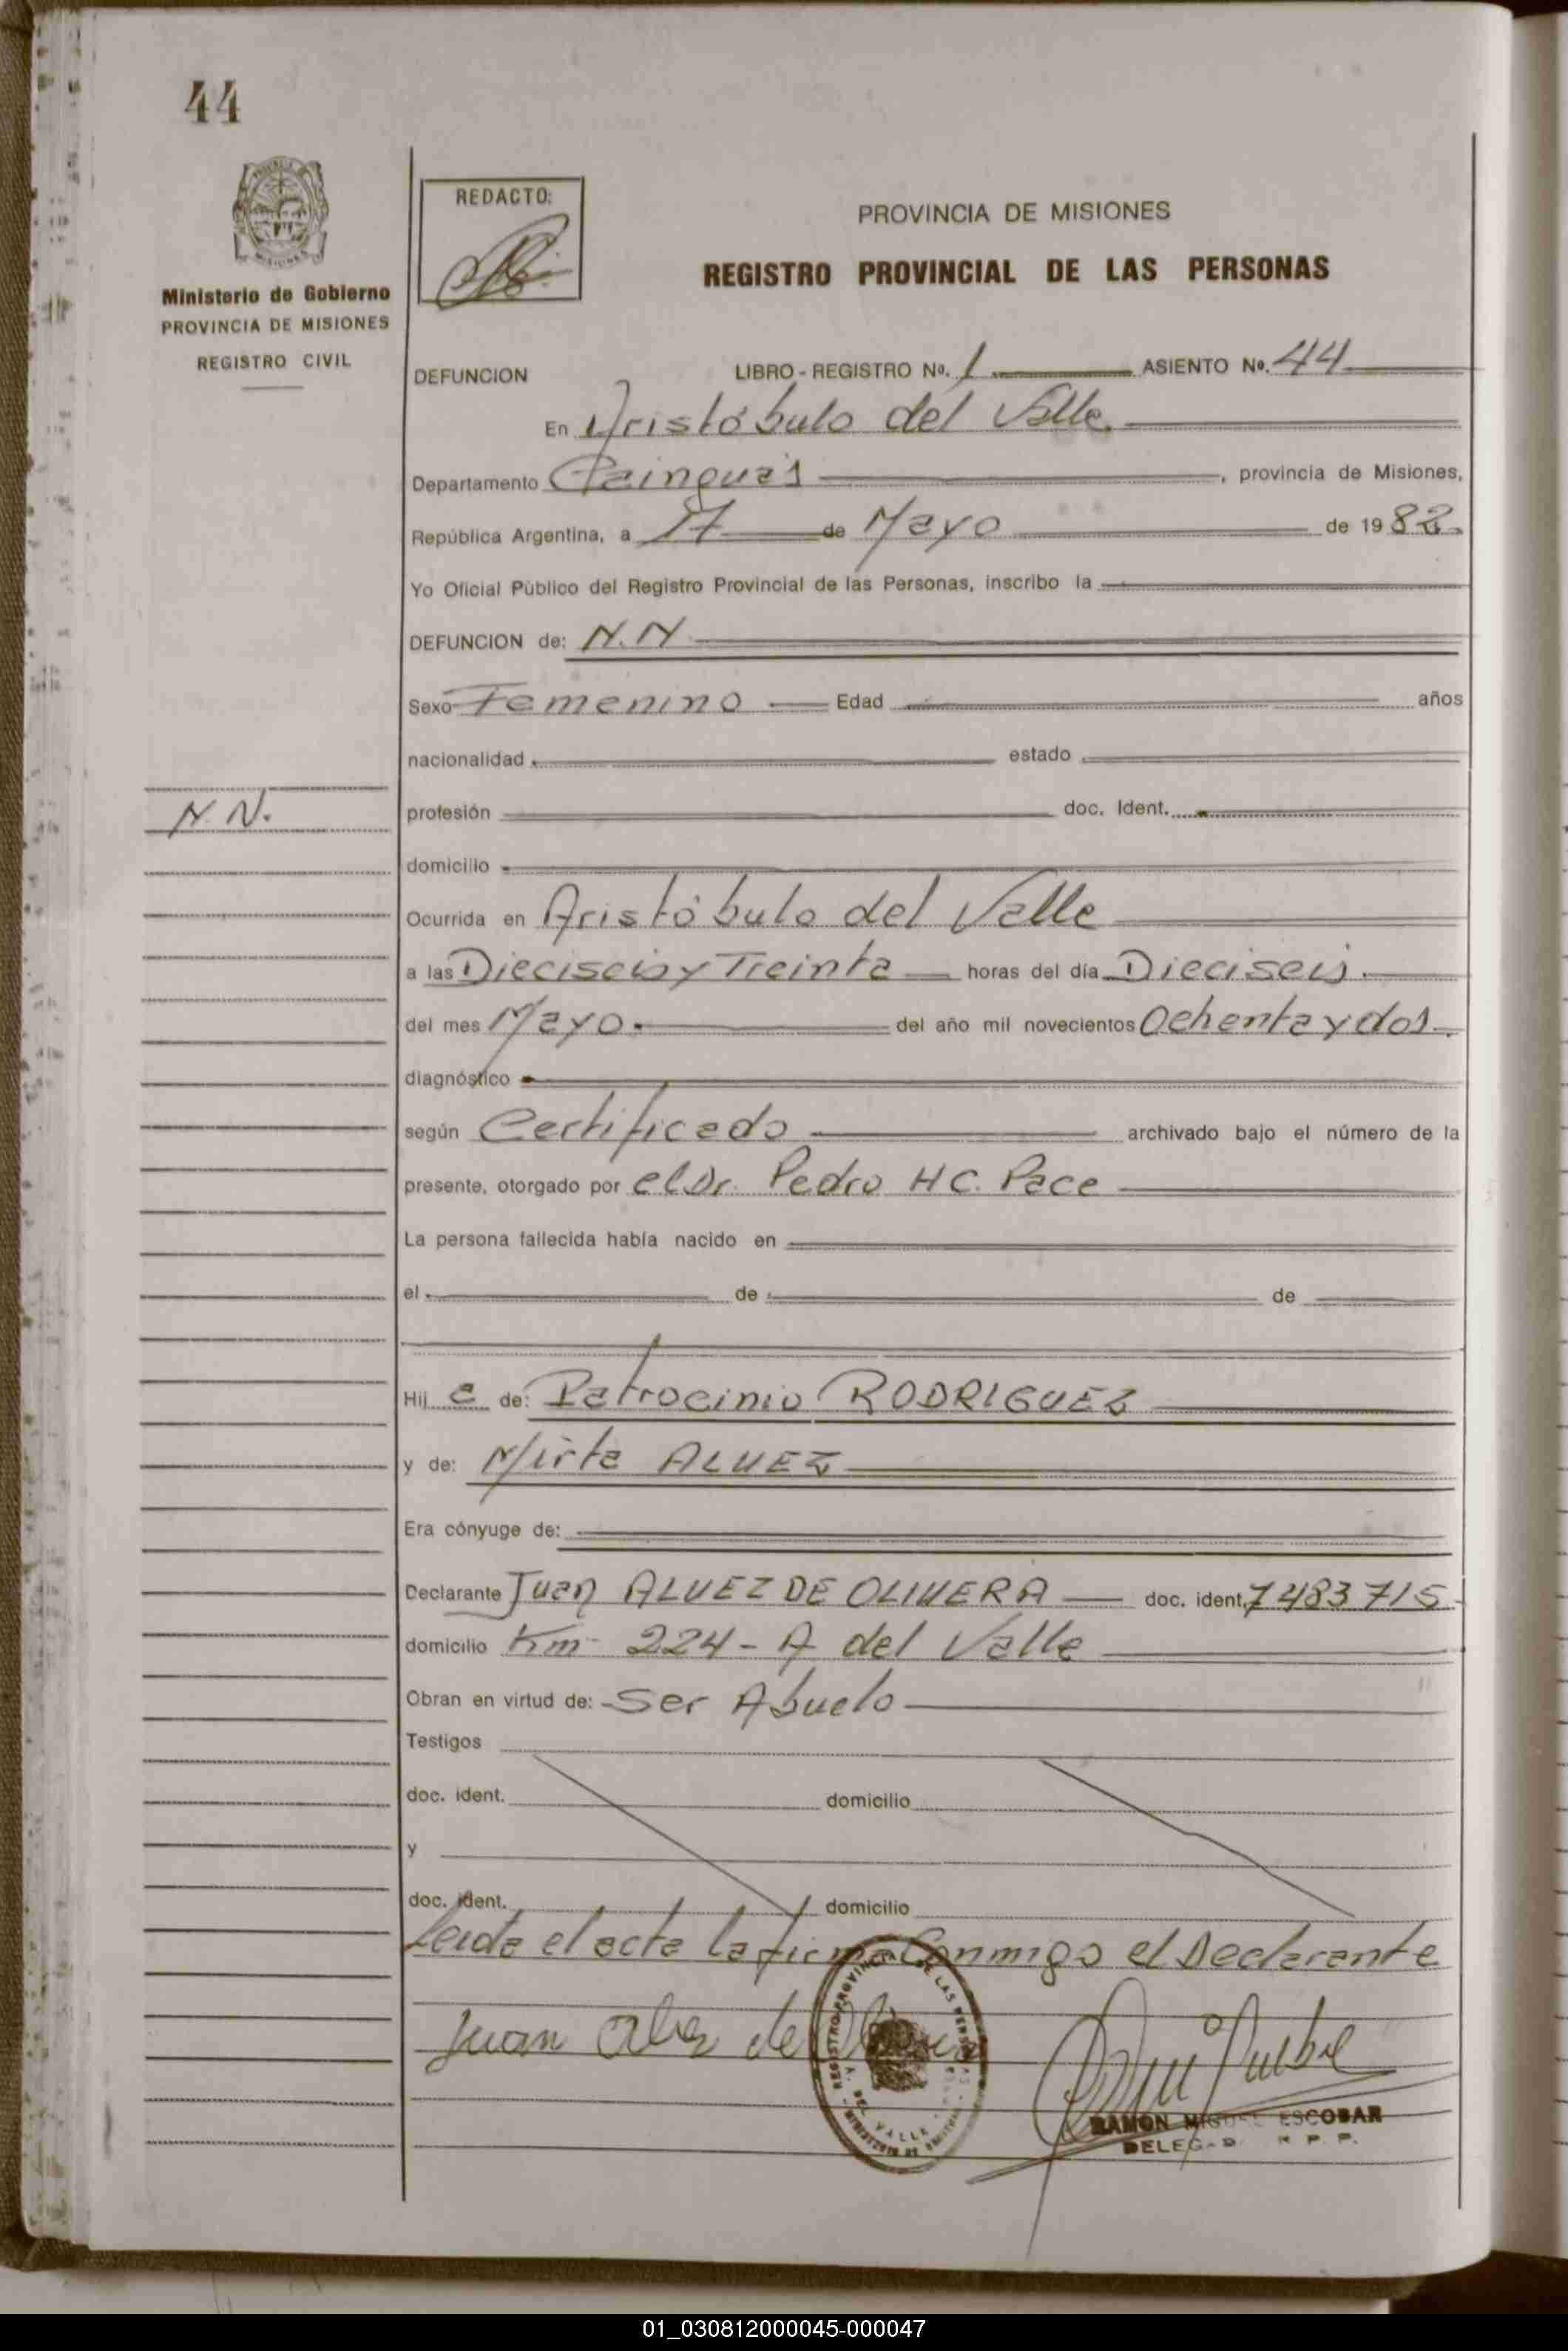 44
Ministerio de Gobierno
PROVINCIA DE MISIONES
REGISTRO CIVIL
REDACTO:
PROVINCIA DE MISIONES
REGISTRO PROVINCIAL DE LAS PERSONAS
DEFUNCION LIBRO - REGISTRO Nº. 1 ASIENTO Nº. 44
En Aristóbulo del Valle
Departamento Cainguás, provincia de Misiones,
República Argentina, a 17 de Mayo de 1982.
Yo Oficial Público del Registro Provincial de las Personas, inscribo la
DEFUNCION de: N.N
Sexo Femenino Edad años
nacionalidad estado
N.N.
profesión doc. Ident.
domicilio
Ocurrida en Aristóbulo del Valle
a las Dieciseis y Treinta horas del día Dieciseis.
del mes Mayo. del año mil novecientos Ochenta y dos.
diagnóstico
según Certificado archivado bajo el número de la
presente, otorgado por el Dr. Pedro H C. Pace
La persona fallecida había nacido en
el de de
Hij a de: Patrocinio RODRIGUEZ
y de: Mirta ALVEZ
Era cónyuge de:
Declarante Juan ALVEZ DE OLIVERA doc. ident. 7483715
domicilio Km 224 - A del Valle
Obran en virtud de: Ser Abuelo
Testigos
doc. ident. domicilio
y
doc. ident. domicilio
Leida el acta la firma Conmigo el Declarante
Juan de
REGISTRO PROVINCIAL DE LAS PERSONAS
DEL VALLE
RAMON MIGUEL ESCOBAR
01_030812000045-000047